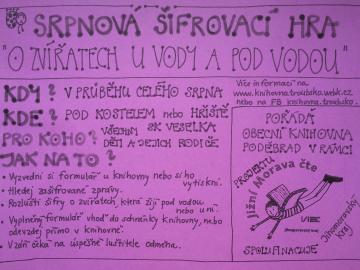 SRPNOVÁ ŠIFROVACÍ HRA
"O ZVÍŘATECH U VODY A POD VODOU"
KDY? V PRŮBĚHU CELÉHO SRPNA
KDE? POD KOSTELEM nebo HŘIŠTĚ SK VESELKA
PRO KOHO? VŠECHNY DĚTI A JEJICH RODIČE
JAK NA TO?
• Vyzvedni si formulář u knihovny nebo si ho vytiskni.
• Hledej zašifrované zprávy.
• Rozlušti šifry o zvířatech, která žijí pod vodou nebo u ní.
• Vyplněný formulář vhoď do schránky knihovny, nebo odevzdej přímo v knihovně.
• V září čeká na úspěšné luštitele odměna.
Více informací na
www.knihovna.troubsko.webk.cz
nebo na FB knihovna.troubsko.
POŘÁDÁ
OBECNÍ KNIHOVNA
V RÁMCI
PROJEKTU
Jižní Morava čte
Jihomoravský kraj
SPOLUFINACUJE